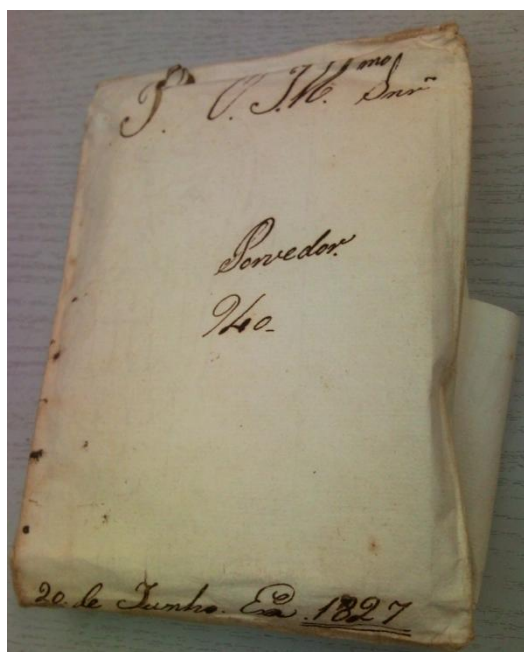 P. O. Ill.mo Snr
Porvedor.
940-
20. de Junho. Era. 1827